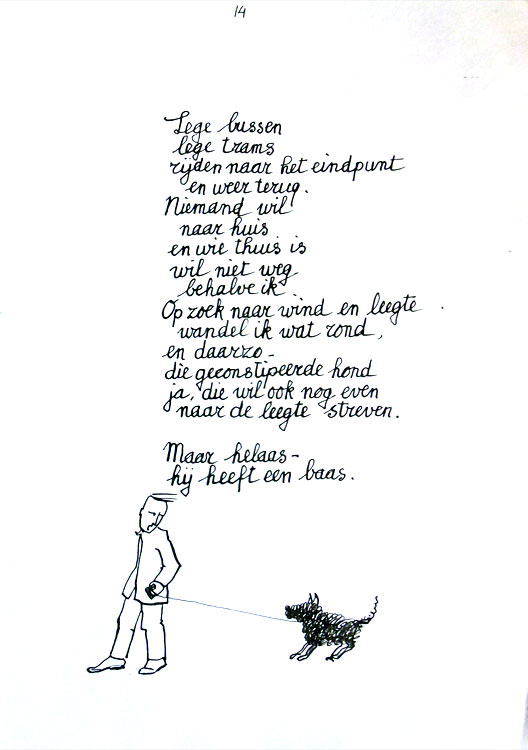 14
Lege bussen
lege trams
rijden naar het eindpunt
en weer terug.
Niemand wil
naar huis
en wie thuis is
wil niet weg
behalve ik.
Op zoek naar wind en leegte
wandel ik wat rond,
en daarzo -
die geconstipeerde hond
ja, die wil ook nog even
naar de leegte streven.
Maar helaas -
hij heeft een baas.